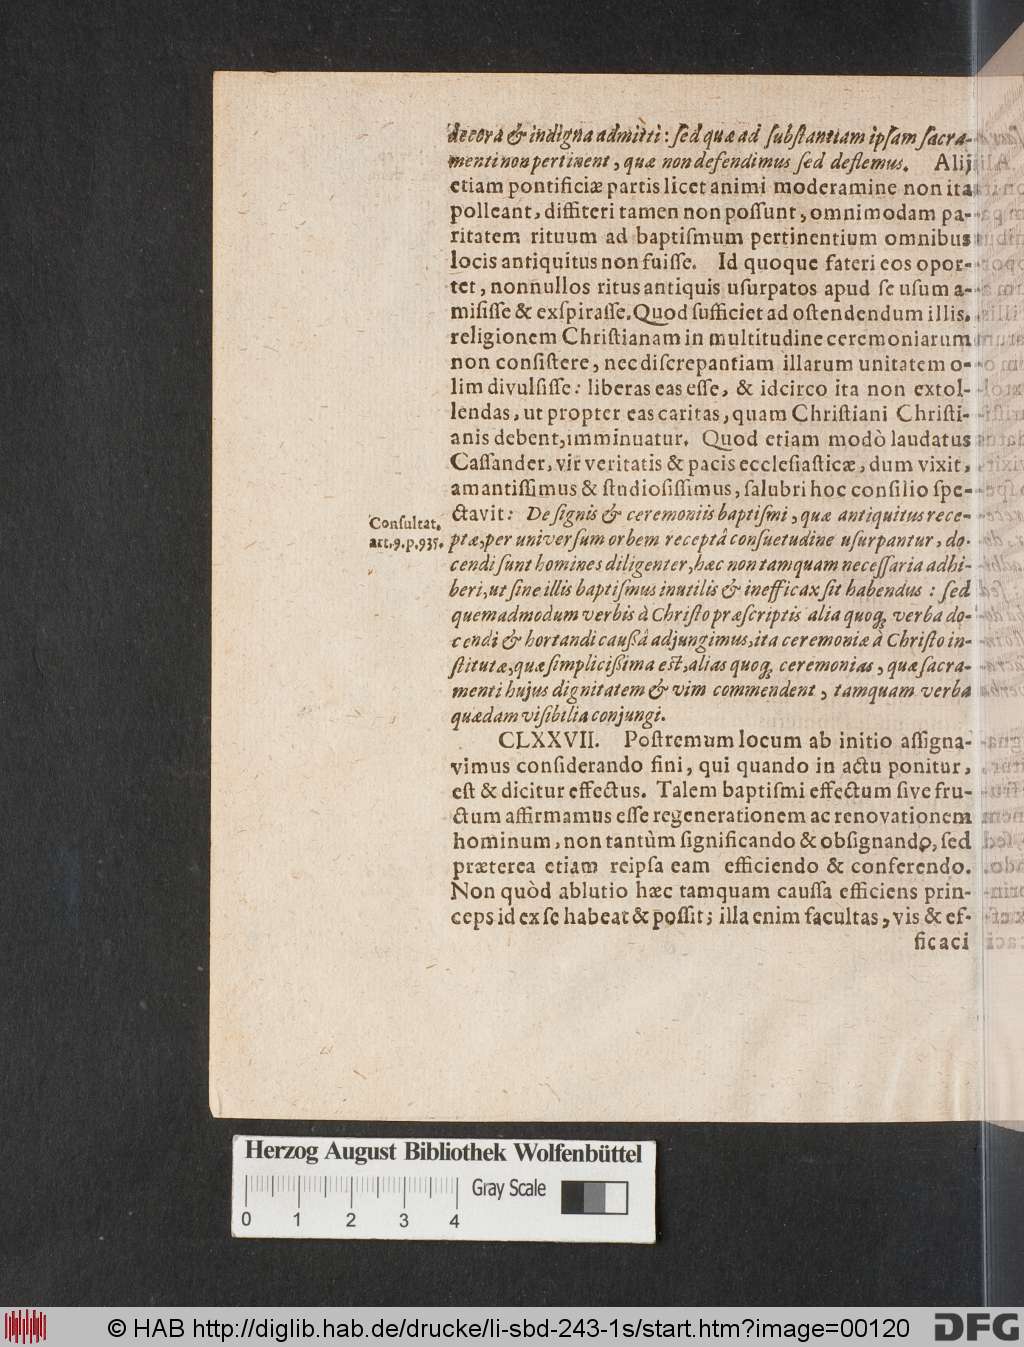 decora & indigna admitti : ſed quæ ad ſubſtantiam ipſam ſacra-
menti non pertinent, quæ non defendimus ſed deflemus. Alij
etiam pontificiæ partis licet animi moderamine non ita
polleant, diffiteri tamen non poſſunt, omnimodam pa-
ritatem rituum ad baptiſmum pertinentium omnibus
locis antiquitus non fuiſſe. Id quoque fateri eos opor-
tet, nonnullos ritus antiquis uſurpatos apud ſe uſum a-
miſiſſe & exſpiraſſe. Quod ſufficiet ad oſtendendum illis,
religionem Chriſtianam in multitudine ceremoniarum
non conſiſtere, nec diſcrepantiam illarum unitatem o-
lim divulſiſſe: liberas eas eſſe, & idcirco ita non extol-
lendas, ut propter eas caritas, quam Chriſtiani Chriſti-
anis debent, imminuatur. Quod etiam modò laudatus
Caſſander, vir veritatis & pacis eccleſiaſticæ, dum vixit,
amantiſſimus & ſtudioſiſſimus, ſalubri hoc conſilio ſpe-
ctavit: De ſignis & ceremoniis baptiſmi, quæ antiquitus rece-
Conſultat.
art. 9. p. 935.
ptæ, per univerſum orbem receptâ conſuetudine uſurpantur, do-
cendi ſunt homines diligenter, hæc non tamquam neceſſaria adhi-
beri, ut ſine illis baptiſmus inutilis & inefficax ſit habendus : ſed
quemadmodum verbis à Chriſto præſcriptis alia quoq; verba do-
cendi & hortandi cauſſâ adjungimus, ita ceremoniæ à Chriſto in-
ſtitutæ, quæ ſimpliciſſima eſt, alias quoq; ceremonias, quæ ſacra-
menti hujus dignitatem & vim commendent, tamquam verba
quædam viſibilia conjungi.
CLXXVII. Poſtremum locum ab initio aſſigna-
vimus conſiderando fini, qui quando in actu ponitur,
eſt & dicitur effectus. Talem baptiſmi effectum ſive fru-
ctum affirmamus eſſe regenerationem ac renovationem
hominum, non tantùm ſignificando & obſignando, ſed
præterea etiam reipſa eam efficiendo & conferendo.
Non quòd ablutio hæc tamquam cauſſa efficiens prin-
ceps id ex ſe habeat & poſſit; illa enim facultas, vis & ef-
ficaci
Herzog August Bibliothek Wolfenbüttel
Gray Scale
0 1 2 3 4
© HAB http://diglib.hab.de/drucke/li-sbd-243-1s/start.htm?image=00120
DFG